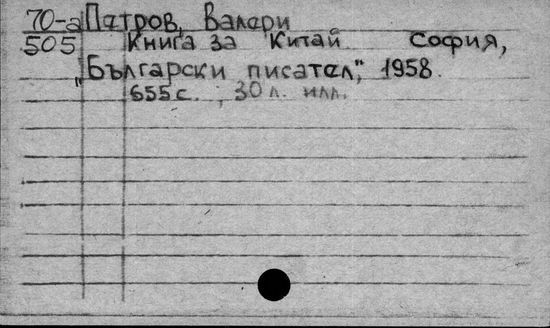 70-а Петров, Валери
505 Книга за Китай София,
„Български писател", 1958.
655 с. ; 30 л. илл.